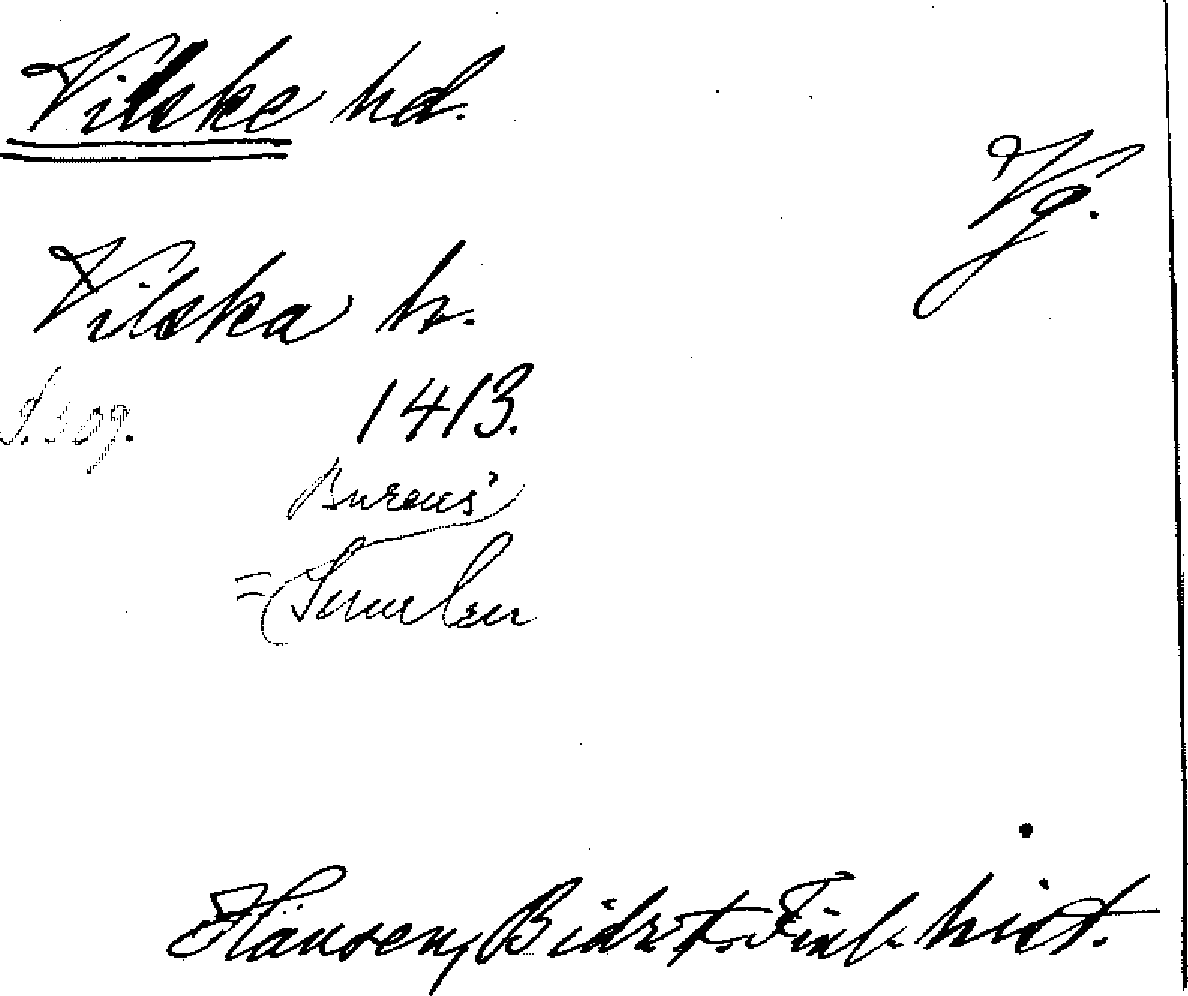 Vilske hd.
Vg.
Vilska h.
S. 309. 1413.
Bureus'
= Sumlen
Hausen, Bidr. t. Finl. hist.